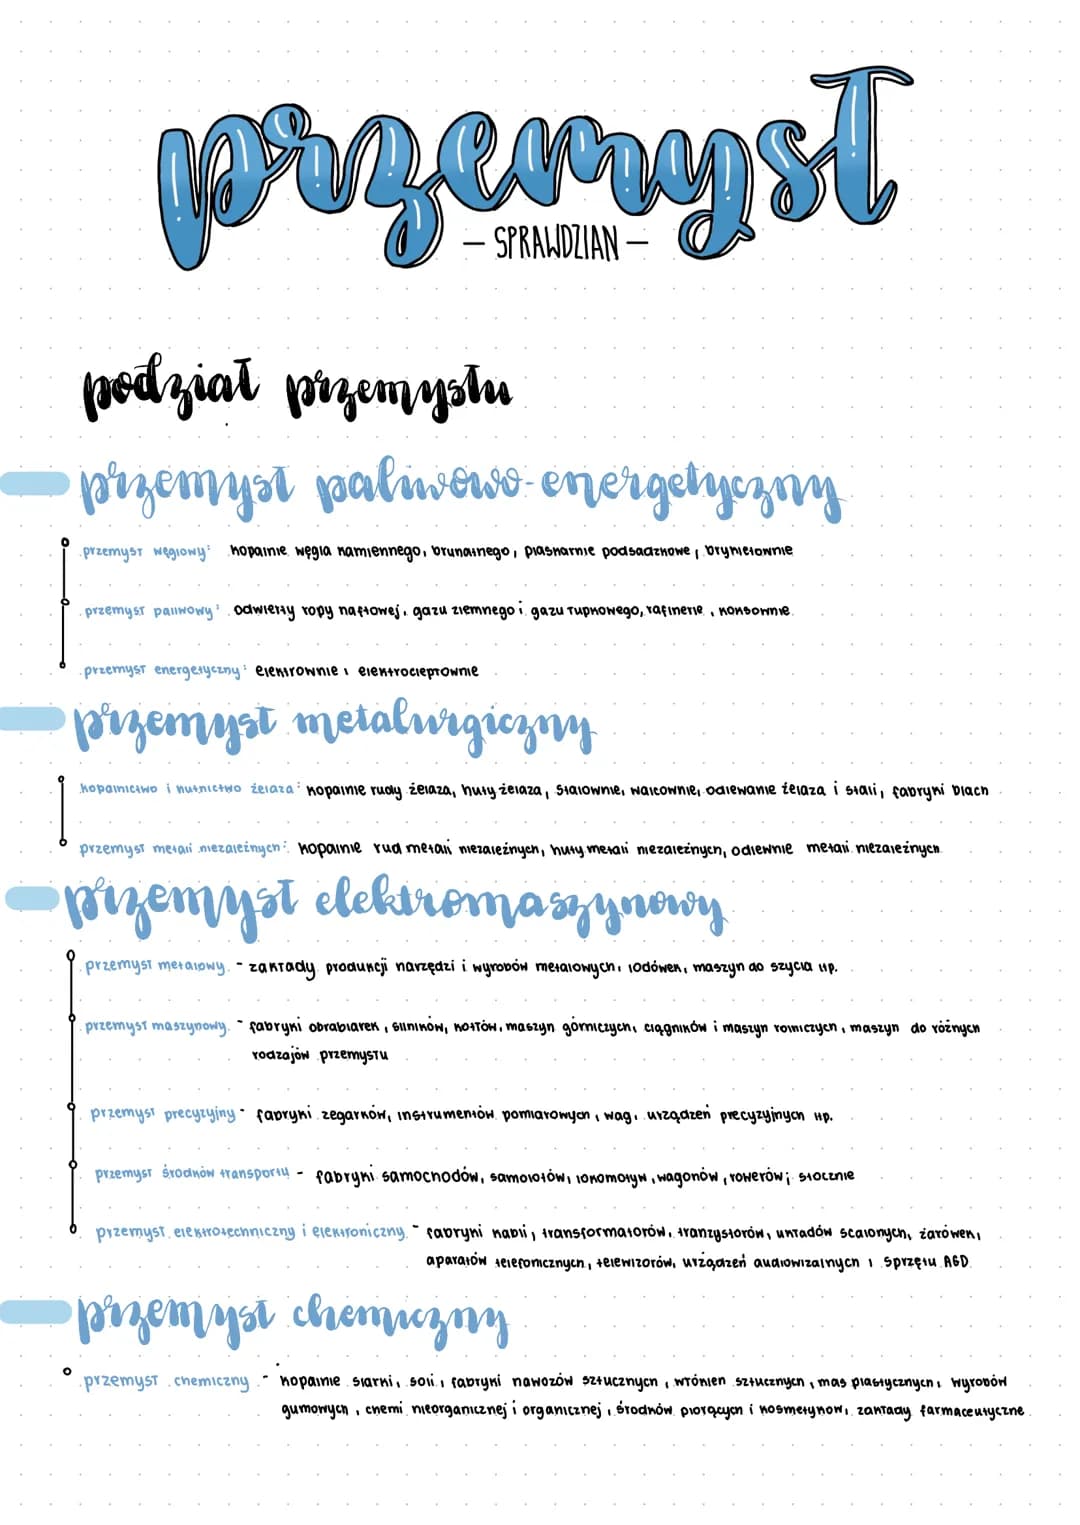 przemysł
– SPRAWDZIAN –
podział przemysłu
przemysł paliwowo-energetyczny
przemysł węglowy: kopalnie węgla kamiennego, brunatnego, piaskarnie podsadzkowe, brykietownie
przemysł paliwowy: odwierty ropy naftowej, gazu ziemnego i gazu łupkowego, rafinerie, koksownie
przemysł energetyczny: elektrownie i elektrociepłownie
przemysł metalurgiczny
kopalnictwo i hutnictwo żelaza: kopalnie rudy żelaza, huty żelaza, stalownie, walcownie, odlewanie żelaza i stali, fabryki blach
przemysł metali niezależnych: kopalnie rud metali niezależnych, huty metali niezależnych, odlewnie metali niezależnych
przemysł elektromaszynowy
przemysł metalowy - zakłady produkcji narzędzi i wyrobów metalowych, lodówek, maszyn do szycia itp.
przemysł maszynowy - fabryki obrabiarek, silników, kotłów, maszyn górniczych, ciągników i maszyn rolniczych, maszyn do różnych
rodzajów przemysłu
przemysł precyzyjny - fabryki zegarków, instrumentów pomiarowych, wag, urządzeń precyzyjnych itp.
przemysł środków transportu - fabryki samochodów, samolotów, lokomotyw, wagonów, rowerów; stocznie
przemysł elektrotechniczny i elektroniczny - fabryki kabli, transformatorów, tranzystorów, układów scalonych, żarówek,
aparatów telefonicznych, telewizorów, urządzeń audiowizalnych i sprzętu AGD
przemysł chemiczny
przemysł chemiczny - kopalnie siarki, soli, fabryki nawozów sztucznych, włókien sztucznych, mas plastycznych, wyrobów
gumowych, chemi nieorganicznej i organicznej, środków piorących i kosmetyków, zakłady farmaceutyczne